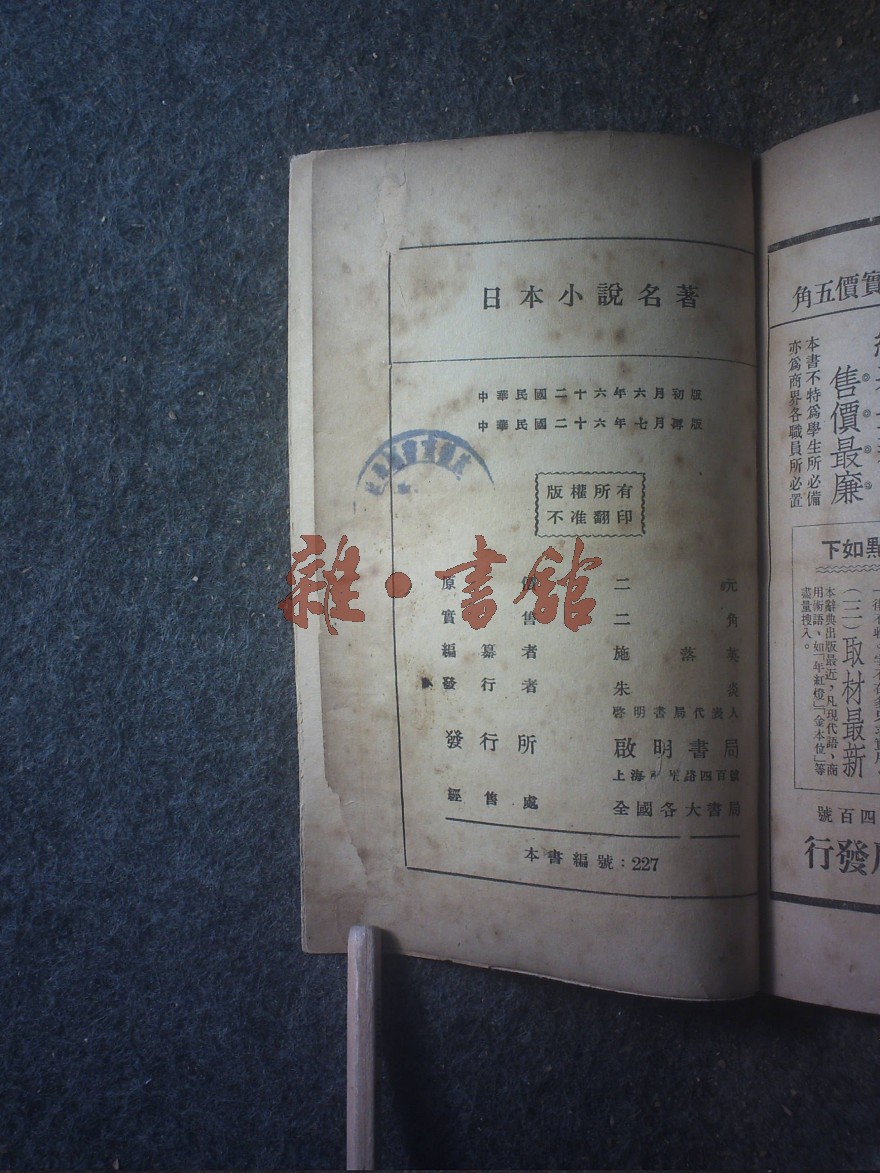 日本小說名著
中華民國二十六年六月初版
中華民國二十六年七月再版
版權所有
不准翻印
原價二元
實售二角
編纂者 施落英
發行者 朱炎
啓明書局代表人
發行所 啟明書局
上海 路四百號
經售處 全國各大書局
本書編號：227
雜·書館
實價五角
售價最廉
本書不特爲學生所必備
亦爲商界各職員所必置
點如下
(三)取材最新
本辭典出版最近、凡現代語、商
用術語、如「年紅燈」「金本位」等
盡量搜入。
四百號
發行